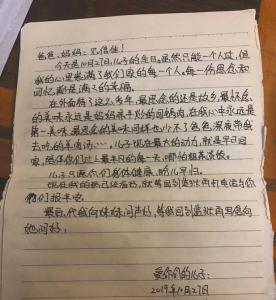 爸爸、妈妈：见信佳！
今天是10月27日，儿子的生日。虽然只能一个人过，但
我的心里装满了我们家的每一个人。每一份思念和
回忆都是满满的幸福。
在外面 这么多年，最思念的还是故乡，最怀念
的美味永远是妈妈亲手炒的回锅肉，在我心中永远是
第一美味。最思念的美味同样也少不了爸爸，深夜带我
去吃的羊肉汤……。儿子现在最大的动力，就是早日回
家，陪伴你们过上最平凡的每一天，哪怕粗茶淡饭。
儿子只愿你们身体健康，盼儿早归。
现在我的 ，就等回到 再打电话与你
们报平安。
最后，代我向妹妹问声好，等我回到 再写信向
她问好。
爱你们的儿子：
2019年10月27日